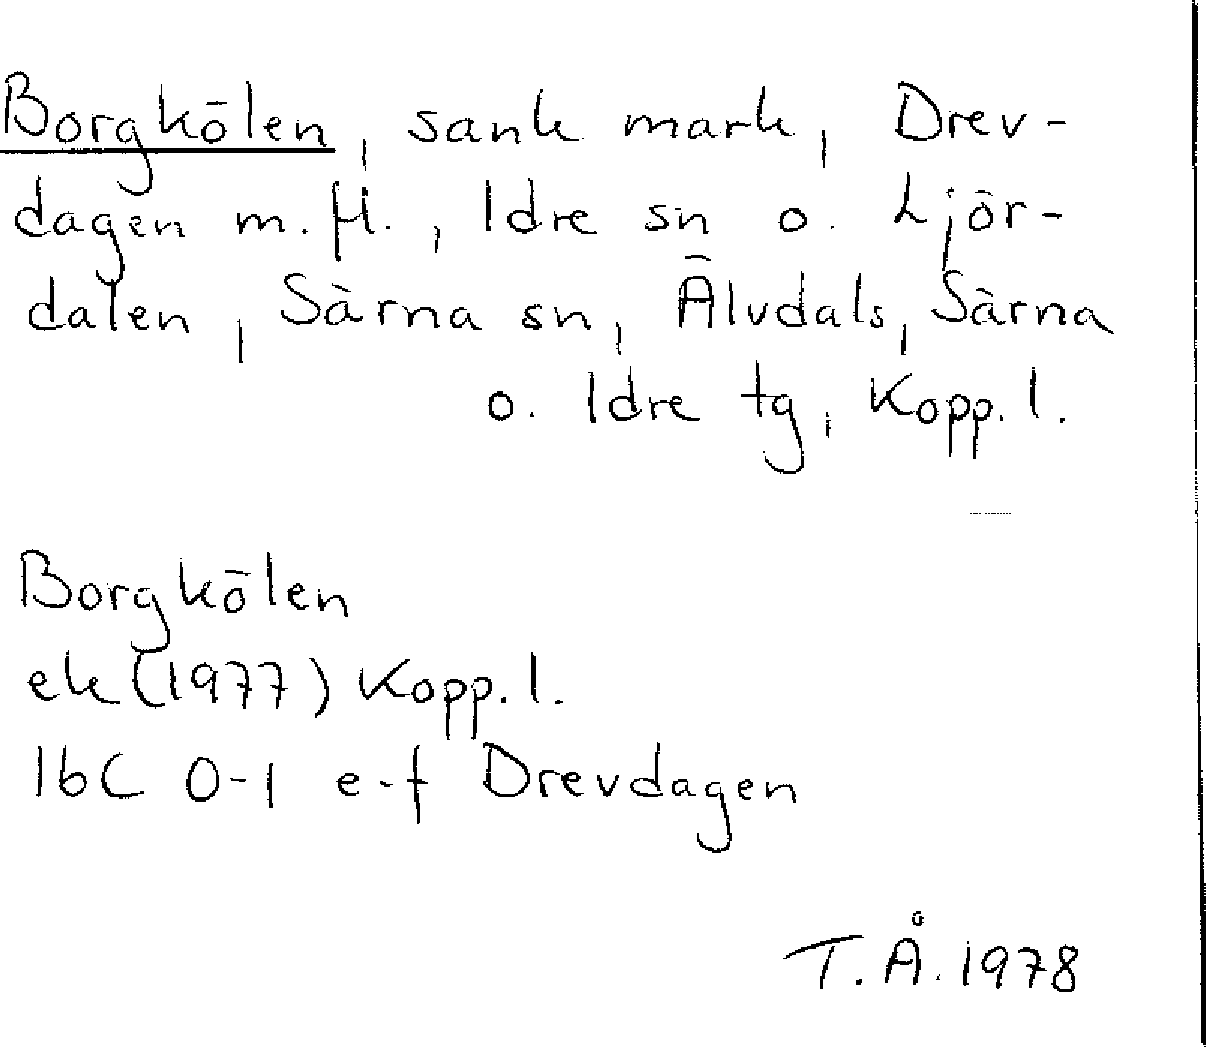 Borgkölen, sank mark, Drev-
dagen m.fl., Idre sn o. Ljör-
dalen, Särna sn, Älvdals, Särna
o. Idre tg, Kopp. l.
Borgkölen
ek (1977) Kopp. l.
16C 0-1 e-f Drevdagen
T.Å. 1978